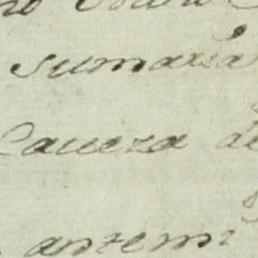 sumaria
Caueza de
antemi